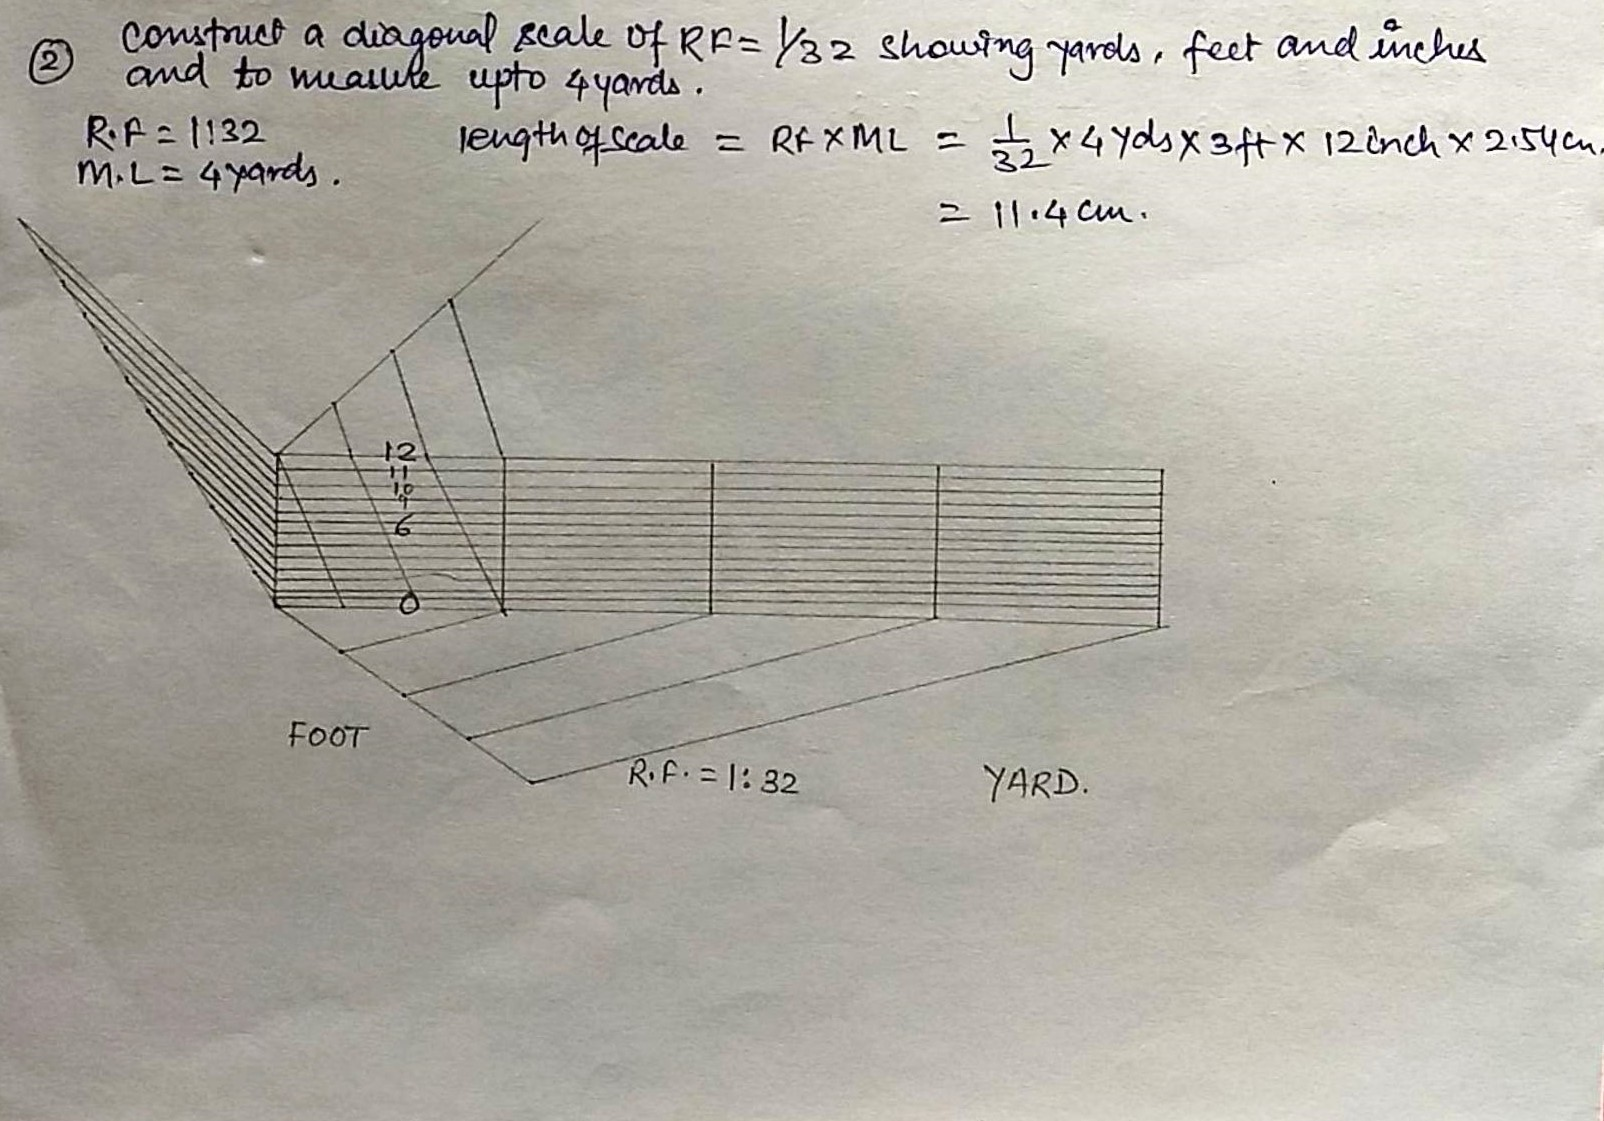 ② construct a diagonal scale of RF = 1/32 showing yards, feet and inches
and to measure upto 4 yards.
R.F = 1:32 length of scale = RF X ML = 1/32 x 4 yds x 3 ft x 12 inch x 2.54 cm.
M.L = 4 yards.
= 11.4 cm.
12
11
10
9
6
0
FOOT
R.F. = 1:32 YARD.